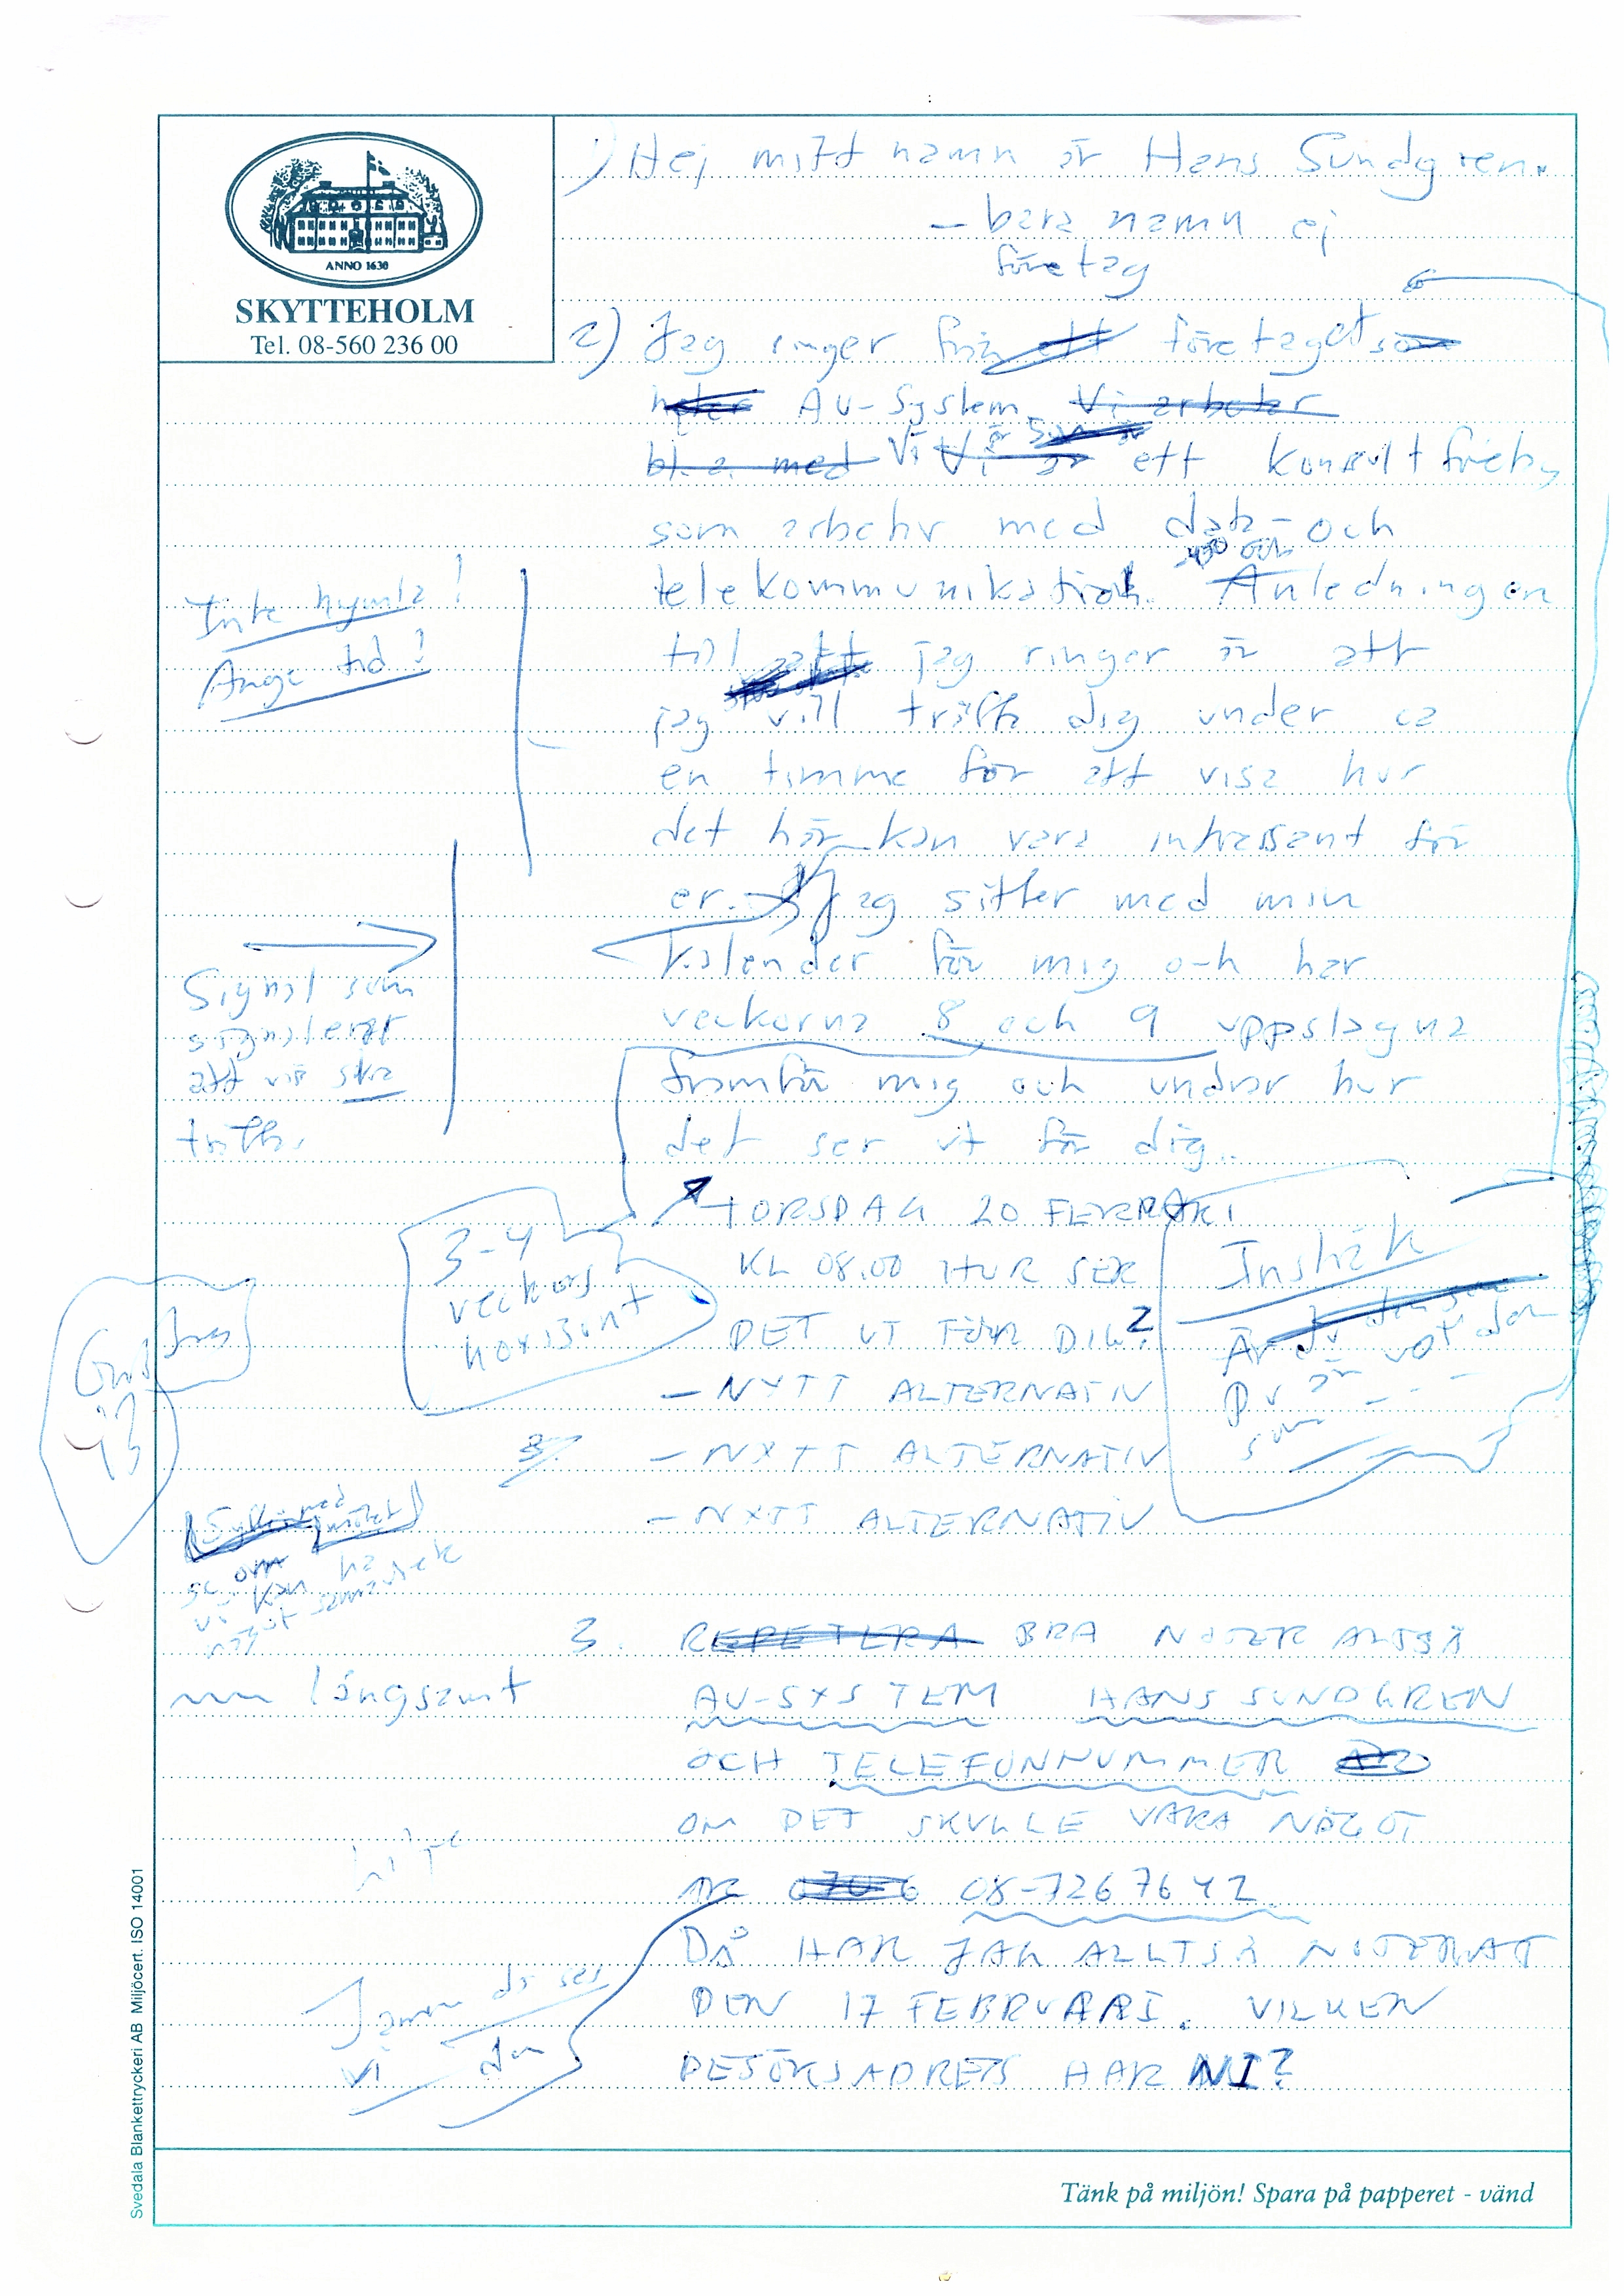 ANNO 1630
SKYTTEHOLM
Tel. 08-560 236 00
1) Hej mitt namn är Hans Sundgren.
– bara namn ej
företag
2) Jag ringer från ett företaget som
heter AU-System. Vi arbetar
bl.a. med Vi är ett konsultföretag
som arbetar med data- och
telekommunikation. Anledningen
till att jag ringer är att
jag vill träffa dig under ca
en timme för att visa hur
det här kan vara intressant för
er. Jag sitter med min
kalender för mig och har
veckorna 8 och 9 uppslagna
framför mig och undrar hur
det ser ut för dig..
Inte hymla!
Ange tid!
Signal som
signalerar
att vi ska
träffas
TORSDAG 20 FEBRUARI
KL 08.00 HUR SER
DET UT FÖR DIG?
– NYTT ALTERNATIV
– NYTT ALTERNATIV
– NYTT ALTERNATIV
3-4
veckors
horisont
Är du
Du är
som - - -
med mötet
se om
vi kan ha
något samarbete
3. REPETERA BRA NOTER ALLTSÅ
långsamt
AU-SYSTEM HANS SUNDGREN
OCH TELEFONNUMMER
OM DET SKULLE VARA NÅGOT
NR 070-6 08-7267642
DÅ HAR JAG ALLTSÅ NOTERAT
DEN 17 FEBRUARI. VILKEN
BESÖKSADRESS HAR NI?
Jamen då ses
vi den
Svedala Blankettryckeri AB Miljöcert. ISO 14001
Tänk på miljön! Spara på papperet - vänd